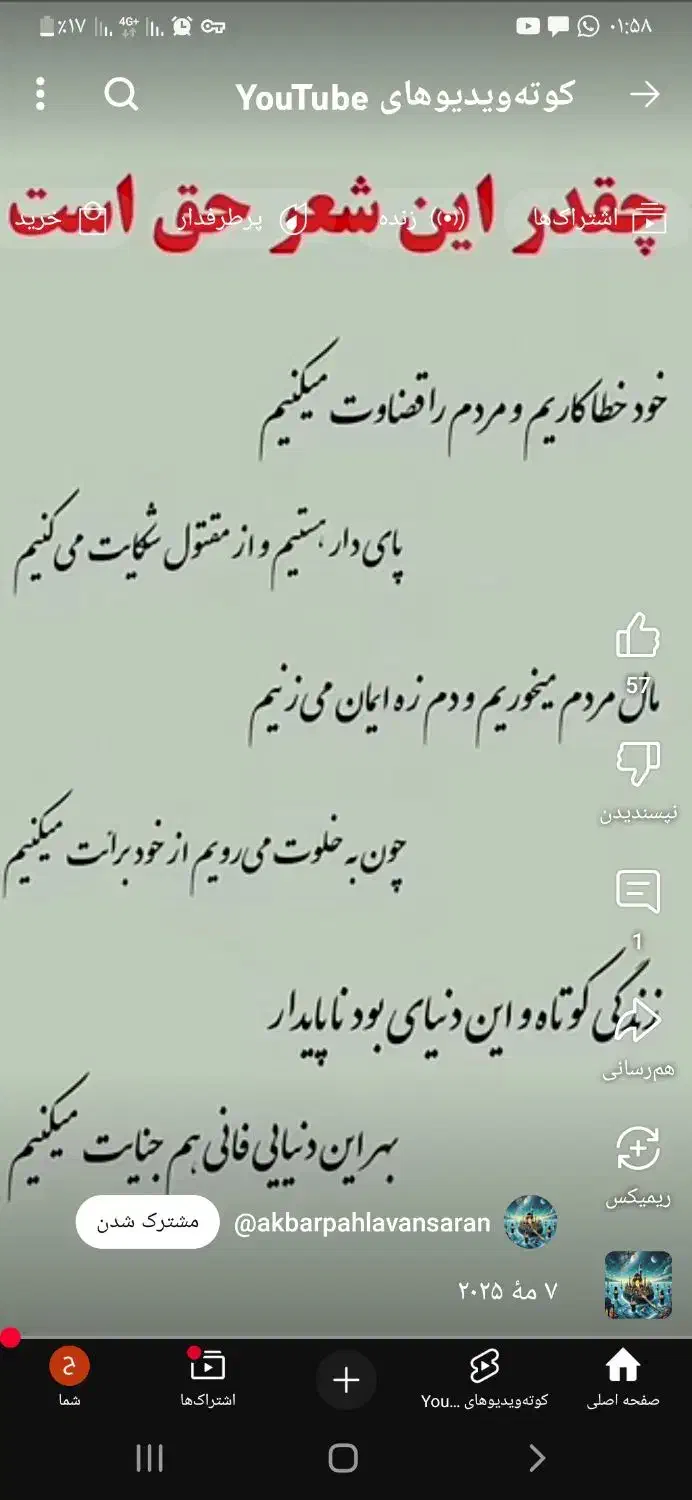 ٪۱۷ 4G+ ۰۱:۵۸
کوته‌ویدیوهای YouTube
چقدر این شعر حق است
اشتراک‌ها زنده پرطرفدار خرید
خود خطاکاریم و مردم را قضاوت میکنیم
پای دار هستیم و از مقتول شکایت می کنیم
مال مردم میخوریم و دم زه ایمان می زنیم
57
نپسندیدن
چون به خلوت می رویم از خود برائت میکنیم
1
زندگی کوتاه و این دنیای بود ناپایدار
هم‌رسانی
بهر این دنیایی فانی هم جنایت میکنیم
ریمیکس
@akbarpahlavansaran مشترک شدن
۷ مهٔ ۲۰۲۵
صفحه اصلی کوته‌ویدیوهای You... اشتراک‌ها شما
ح